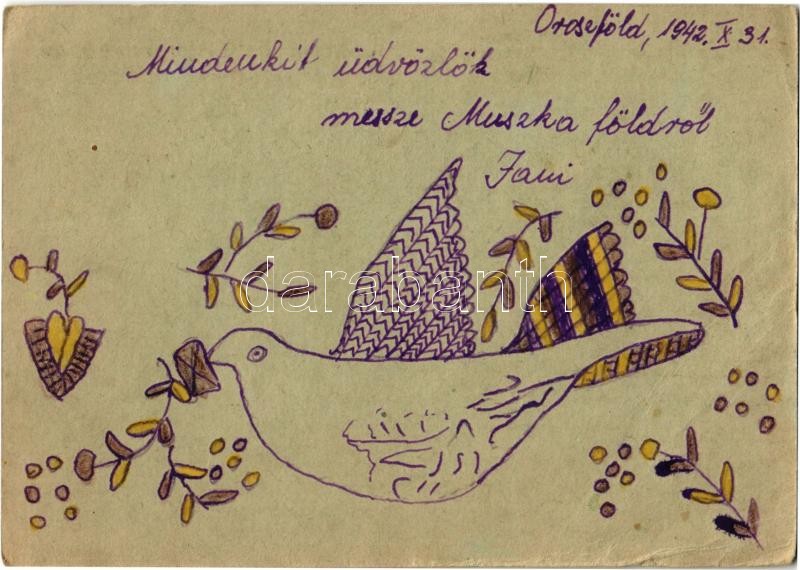 Oroszföld, 1942. X 31.
Mindenkit üdvözlök
messze Muszka földről
Jani
darabanth